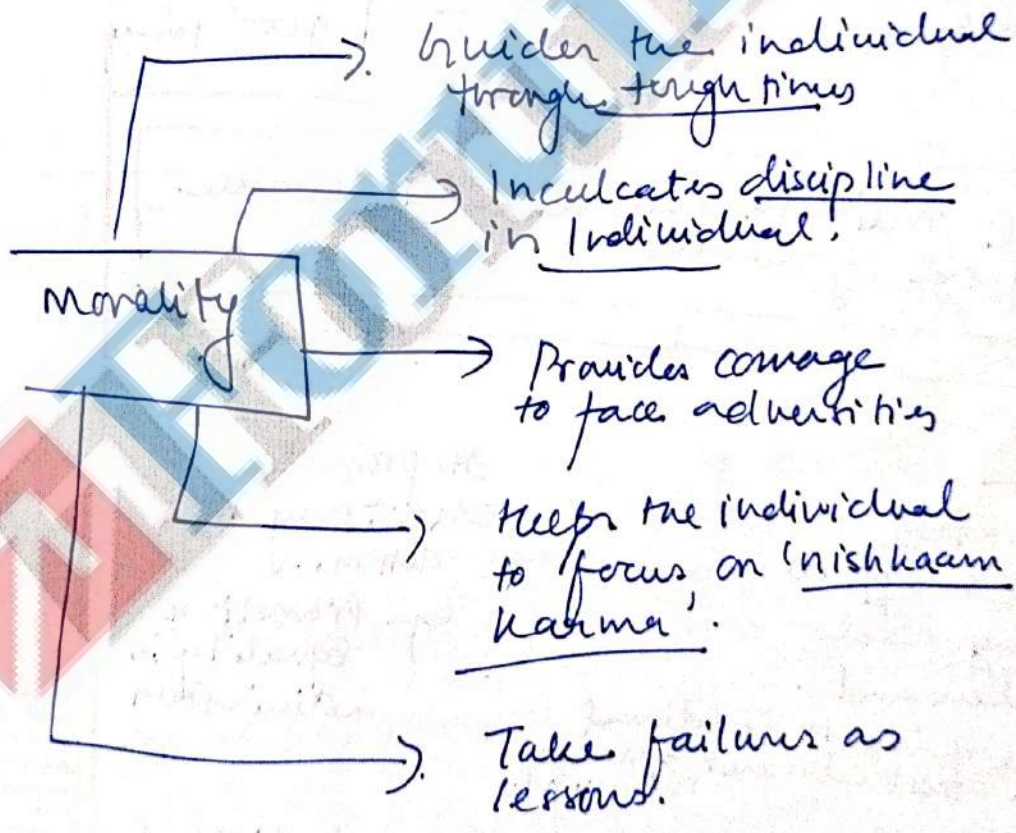 Guides the individual
through tough times
Inculcates discipline
in Individual.
Morality
Provides courage
to face adversities
Keeps the individual
to focus on 'nishkaam
karma'.
Take failures as
lessons.
Forum